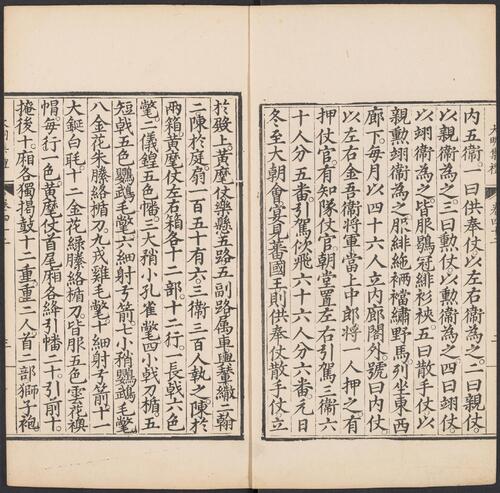 內五衞一曰供奉仗以左右衞為之二曰親仗
以親衞為之三曰勲仗以勲衞為之四曰翊仗
以翊衞為之皆服鶡冠緋衫裌五曰散手仗以
親勲翊衞為之服緋絁裲襠繡野馬列坐東西
廊下每月以四十六人立内廊閤外號曰内仗
以左右金吾衞將軍當上中郎將一人押之有
押仗官有知隊仗官朝堂置左右引駕三衞六
十人分五番引駕佽飛六十六人分六番元日
冬至大朝會宴見蕃國王則供奉仗散手仗立
於殿上黄麾仗樂懸五路五副路属車輿輦繖二翰
二陳於庭扇一百五十有六三衞三百人執之陳於
兩箱黄麾仗左右箱各十二部十二行一長戟六色
氅二儀鍠五色幡三大矟小孔雀氅四小戟刀楯五
短戟五色鸚鵡毛氅六細射弓箭七小矟鸚鵡毛氅
八金花朱縢絡楯刀九戎雞毛氅十細射弓箭十一
大鋋白毦十二金花綠縢絡楯刀皆服五色雲花襖
帽每行一色黄麾仗首尾廂各絳引幡二十引前十
掩後十廂各獨揭鼓十二重重二人首二部獅子袍